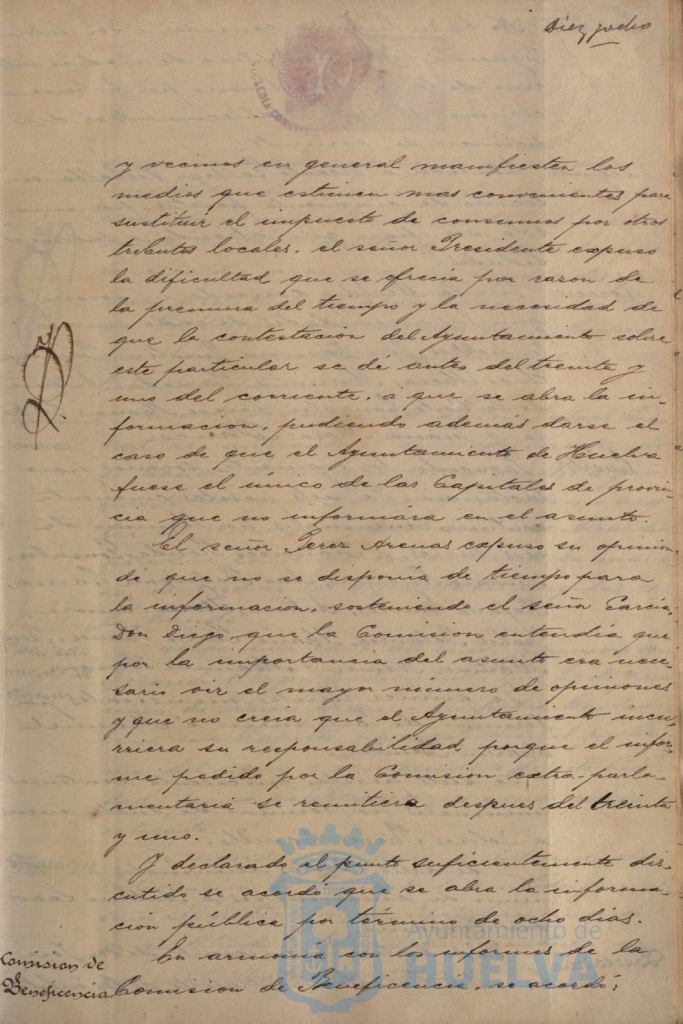 Diez y ocho
ALCALDIA CONST
y vecinos en general manifiesten los
medios que estimen mas convenientes para
sustituir el impuesto de consumos por otros
tributos locales, el señor Presidente expuso
la dificultad que se ofrecia por razon de
la premura del tiempo y la necesidad de
que la contestación del Ayuntamiento sobre
este particular se dé antes del treinta y
uno del corriente, á que se abra la in-
formacion, pudiendo además darse el
caso de que el Ayuntamiento de Huelva
fuese el único de las Capitales de provin-
cia que no informára en el asunto.
El señor Perez Arenas expuso su opinion
de que no se disponía de tiempo para
la informacion, sosteniendo el señor García,
Don Diego que la Comision entendía que
por la importancia del asunto era nece-
sario oir el mayor número de opiniones
y que no creia que el Ayuntamiento incu-
rriera en responsabilidad porque el infor-
me pedido por la Comision extra-parla-
mentaria se remitiera despues del treinta
y uno.
Y declarado el punto suficientemente dis-
cutido se acordó que se abra la informa-
ción pública por término de ocho dias.
Comision de
Beneficencia
En armonía con los informes de la
Comision de Beneficencia, se acordó;
Ayuntamiento de
HUELVA